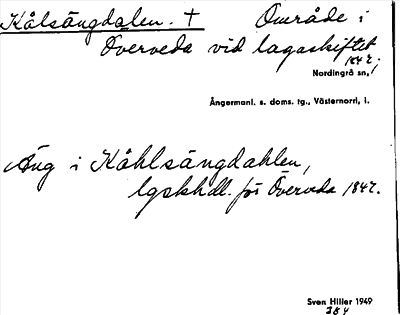 Kålsängdalen. † Område i
Överveda vid lagaskiftet
1847;
Nordingrå sn,
Ångermanl. s. doms. tg., Västernorrl. l.
Äng i Kåhlsängdahlen,
lgskhdl. för Överveda 1847.
Sven Hiller 1949
384